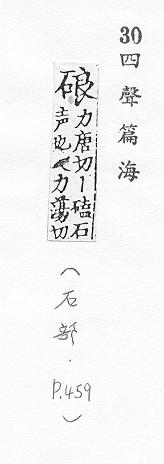 30四聲篇海
硠力唐切丨磕石
声也又力蕩切
（石部．P.459）